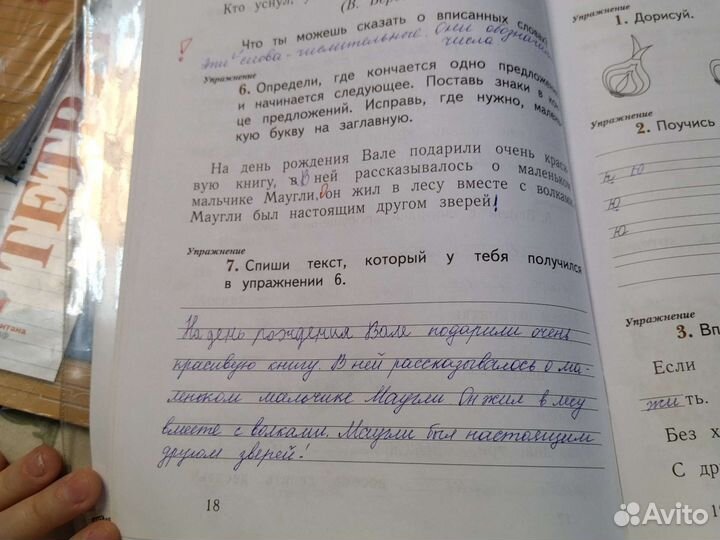 Кто уснул, у
(В. Бер
Что ты можешь сказать о вписанных словах
! Эти слова - числительные. Они обозначают
числа
Упражнение
6. Определи, где кончается одно предложение
и начинается следующее. Поставь знаки в кон-
це предложений. Исправь, где нужно, мален
кую букву на заглавную.
На день рождения Вале подарили очень краси
вую книгу, В ней рассказывалось о маленьком
мальчике Маугли. Он жил в лесу вместе с волками
Маугли был настоящим другом зверей!
Упражнение
7. Спиши текст, который у тебя получился
в упражнении 6.
На день рождения Вале подарили очень
красивую книгу. В ней рассказывалось о ма-
леньком мальчике Маугли. Он жил в лесу
вместе с волками. Маугли был настоящим
другом зверей!
18
ТЕТР
Упражнение
1. Дорисуй.
Упражнение
2. Поучись
Ю
Ю
Ю
Упражнение
3. Вп
Если
жить.
Без х
С др
19
Avito